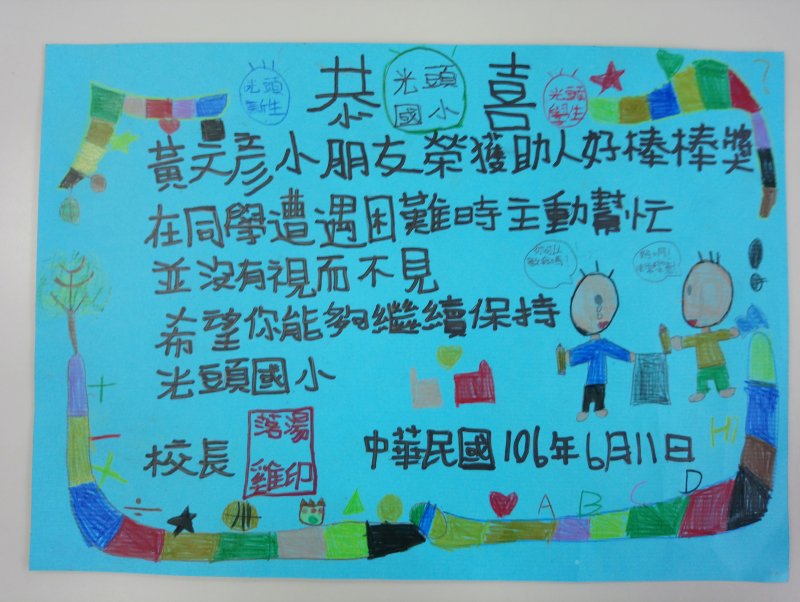 恭喜
光頭國小
光頭新生
光頭學生
?
黃文彥小朋友榮獲助人好棒棒獎
在同學遭遇困難時主動幫忙
並沒有視而不見
希望你能夠繼續保持
光頭國小
校長
落湯
雞印
中華民國106年6月11日
Hi
A B C D